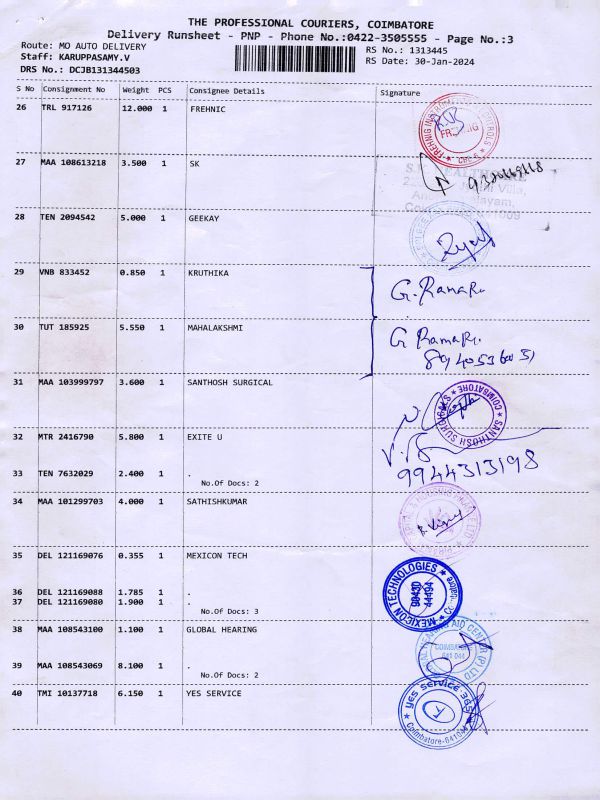 THE PROFESSIONAL COURIERS, COIMBATORE
Delivery Runsheet - PNP - Phone No.:0422-3505555 - Page No.:3
Route: MO AUTO DELIVERY
RS No.: 1313445
Staff: KARUPPASAMY.V
RS Date: 30-Jan-2024
DRS No.: DCJB131344503
S No Consignment No Weight PCS Consignee Details Signature
26 TRL 917126 12.000 1 FREHNIC
27 MAA 108613218 3.500 1 SK
28 TEN 2094542 5.000 1 GEEKAY
29 VNB 833452 0.850 1 KRUTHIKA
G. Ramaru
30 TUT 185925 5.550 1 MAHALAKSHMI
G Ramaru
31 MAA 103999797 3.600 1 SANTHOSH SURGICAL
SANTHOSH SURGICALS COIMBATORE
32 MTR 2416790 5.800 1 EXITE U
9944313198
33 TEN 7632029 2.400 1 .
No.Of Docs: 2
34 MAA 101299703 4.000 1 SATHISHKUMAR
35 DEL 121169076 0.355 1 MEXICON TECH
MEXICON TECHNOLOGIES
98430
44194
36 DEL 121169088 1.785 1 .
37 DEL 121169080 1.900 1 .
No.Of Docs: 3
38 MAA 108543100 1.100 1 GLOBAL HEARING
HEARING AID CENTER (P) LTD
COIMBATORE
641 044
39 MAA 108543069 8.100 1 .
No.Of Docs: 2
40 TMI 10137718 6.150 1 YES SERVICE
yes service 365
Coimbatore-641044